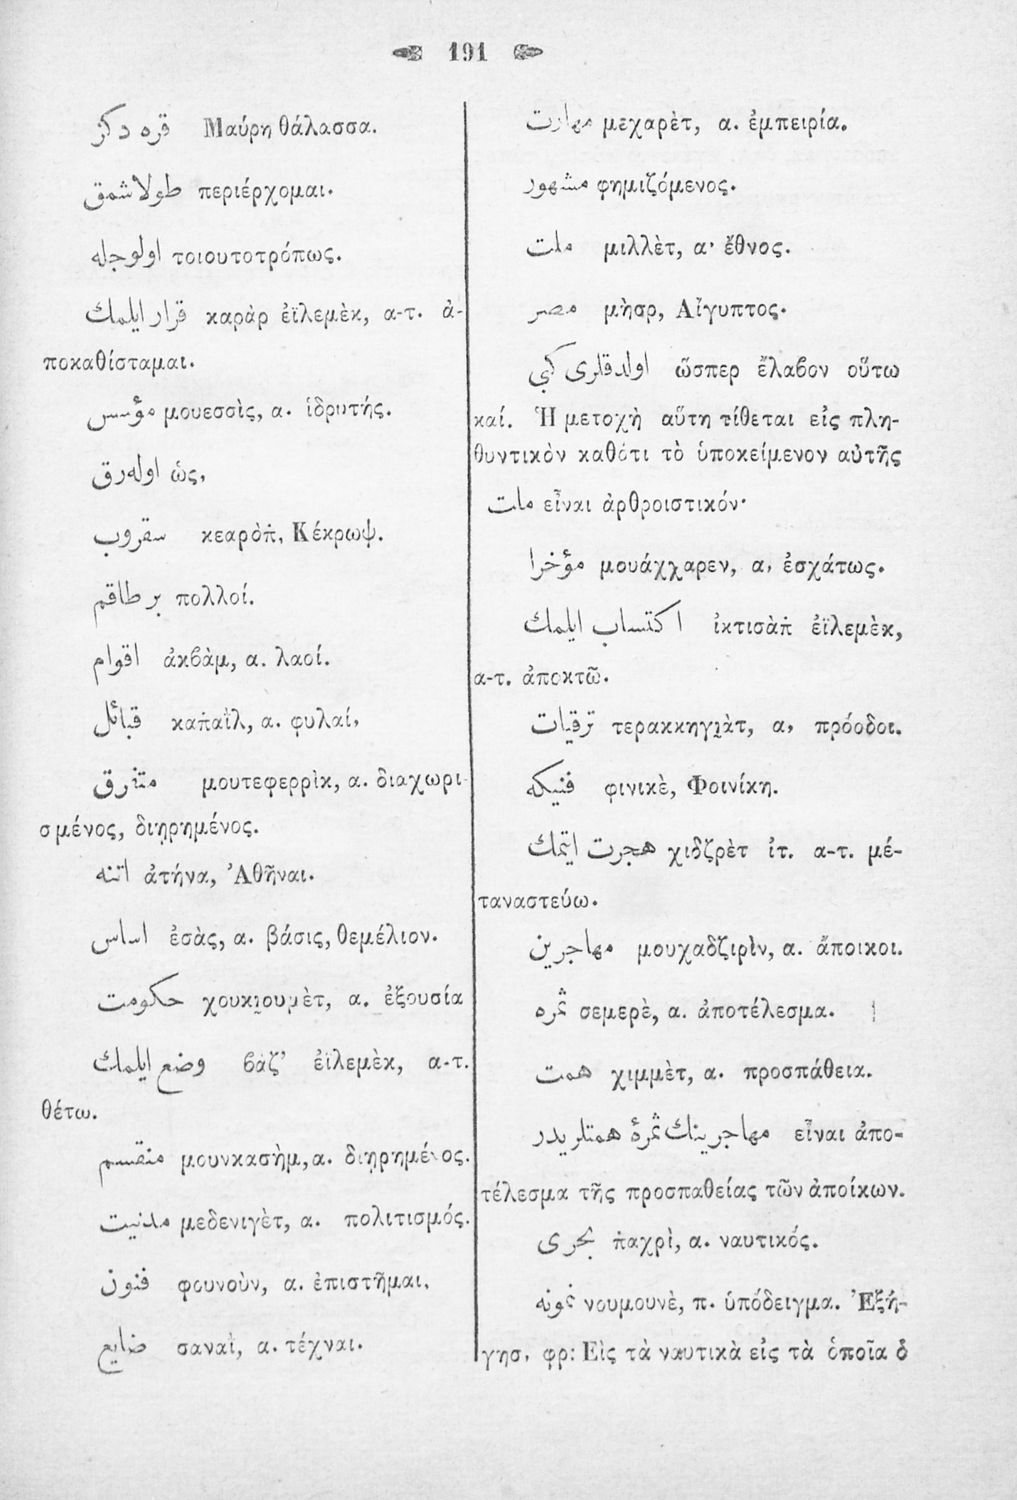 191
قره دكز Μαύρη θάλασσα.
طولاشمق περιέρχομαι.
اولوجله τοιουτοτρόπως.
قرار ايلمك καρὰρ ἐϊλεμὲκ, α-τ. ἀ-
ποκαθίσταμαι.
مؤسس μουεσσὶς, α. ἱδρυτής.
اوله‌رق ὡς,
سقروب κεαρὸπ̇, Κέκρωψ.
بر طاقم πολλοί.
اقوام ἀκβὰμ, α. λαοί.
قبائل καπ̇αῒλ, α. φυλαί,
متفرق μουτεφερρὶκ, α. διαχωρι-
σμένος, διῃρημένος.
اتنه ἀτήνα, Ἀθῆναι.
اساس ἐσὰς, α. βάσις, θεμέλιον.
حكومت χουκιουμὲτ, α. ἐξουσία
وضع ايلمك βὰζ’ ἐϊλεμὲκ, α-τ.
θέτω.
منقسم μουνκασὴμ, α. διῃρημένος.
مدنيت μεδενιγὲτ, α. πολιτισμός.
فنون φουνοὺν, α. ἐπιστῆμαι.
ضايع σαναῒ, α. τέχναι.
مهارت μεχαρὲτ, α. ἐμπειρία.
مشهور φημιζόμενος.
ملت μιλλὲτ, α· ἔθνος.
مصر μὴσρ, Αἴγυπτος.
اولدقلرى كبى ὥσπερ ἔλαβον οὕτω
καί. Ἡ μετοχὴ αὕτη τίθεται εἰς πλη-
θυντικὸν καθότι τὸ ὑποκείμενον αὐτῆς
ملت εἶναι ἀρθροιστικόν·
مؤخرا μουάχχαρεν, α, ἐσχάτως.
اكتساب ايلمك ἰκτισὰπ̇ ἐϊλεμὲκ,
α-τ. ἀποκτῶ.
ترقيات τερακκηγιὰτ, α, πρόοδοι.
فنيكه φινικὲ, Φοινίκη.
هجرت ايتمك χιδζρὲτ ἰτ. α-τ. μέ-
ταναστεύω.
مهاجرين μουχαδζιρὶν, α. ἄποικοι.
ثمره σεμερὲ, α. ἀποτέλεσμα.
همت χιμμὲτ, α. προσπάθεια.
مهاجرينك ثمرۀ همتلريدر εἶναι ἀπο-
τέλεσμα τῆς προσπαθείας τῶν ἀποίκων.
بحرى π̇αχρὶ, α. ναυτικός.
نمونه νουμουνὲ, π. ὑπόδειγμα. Ἐξή-
γησ. φρ: Εἰς τὰ ναυτικὰ εἰς τὰ ὁποῖα ὁ